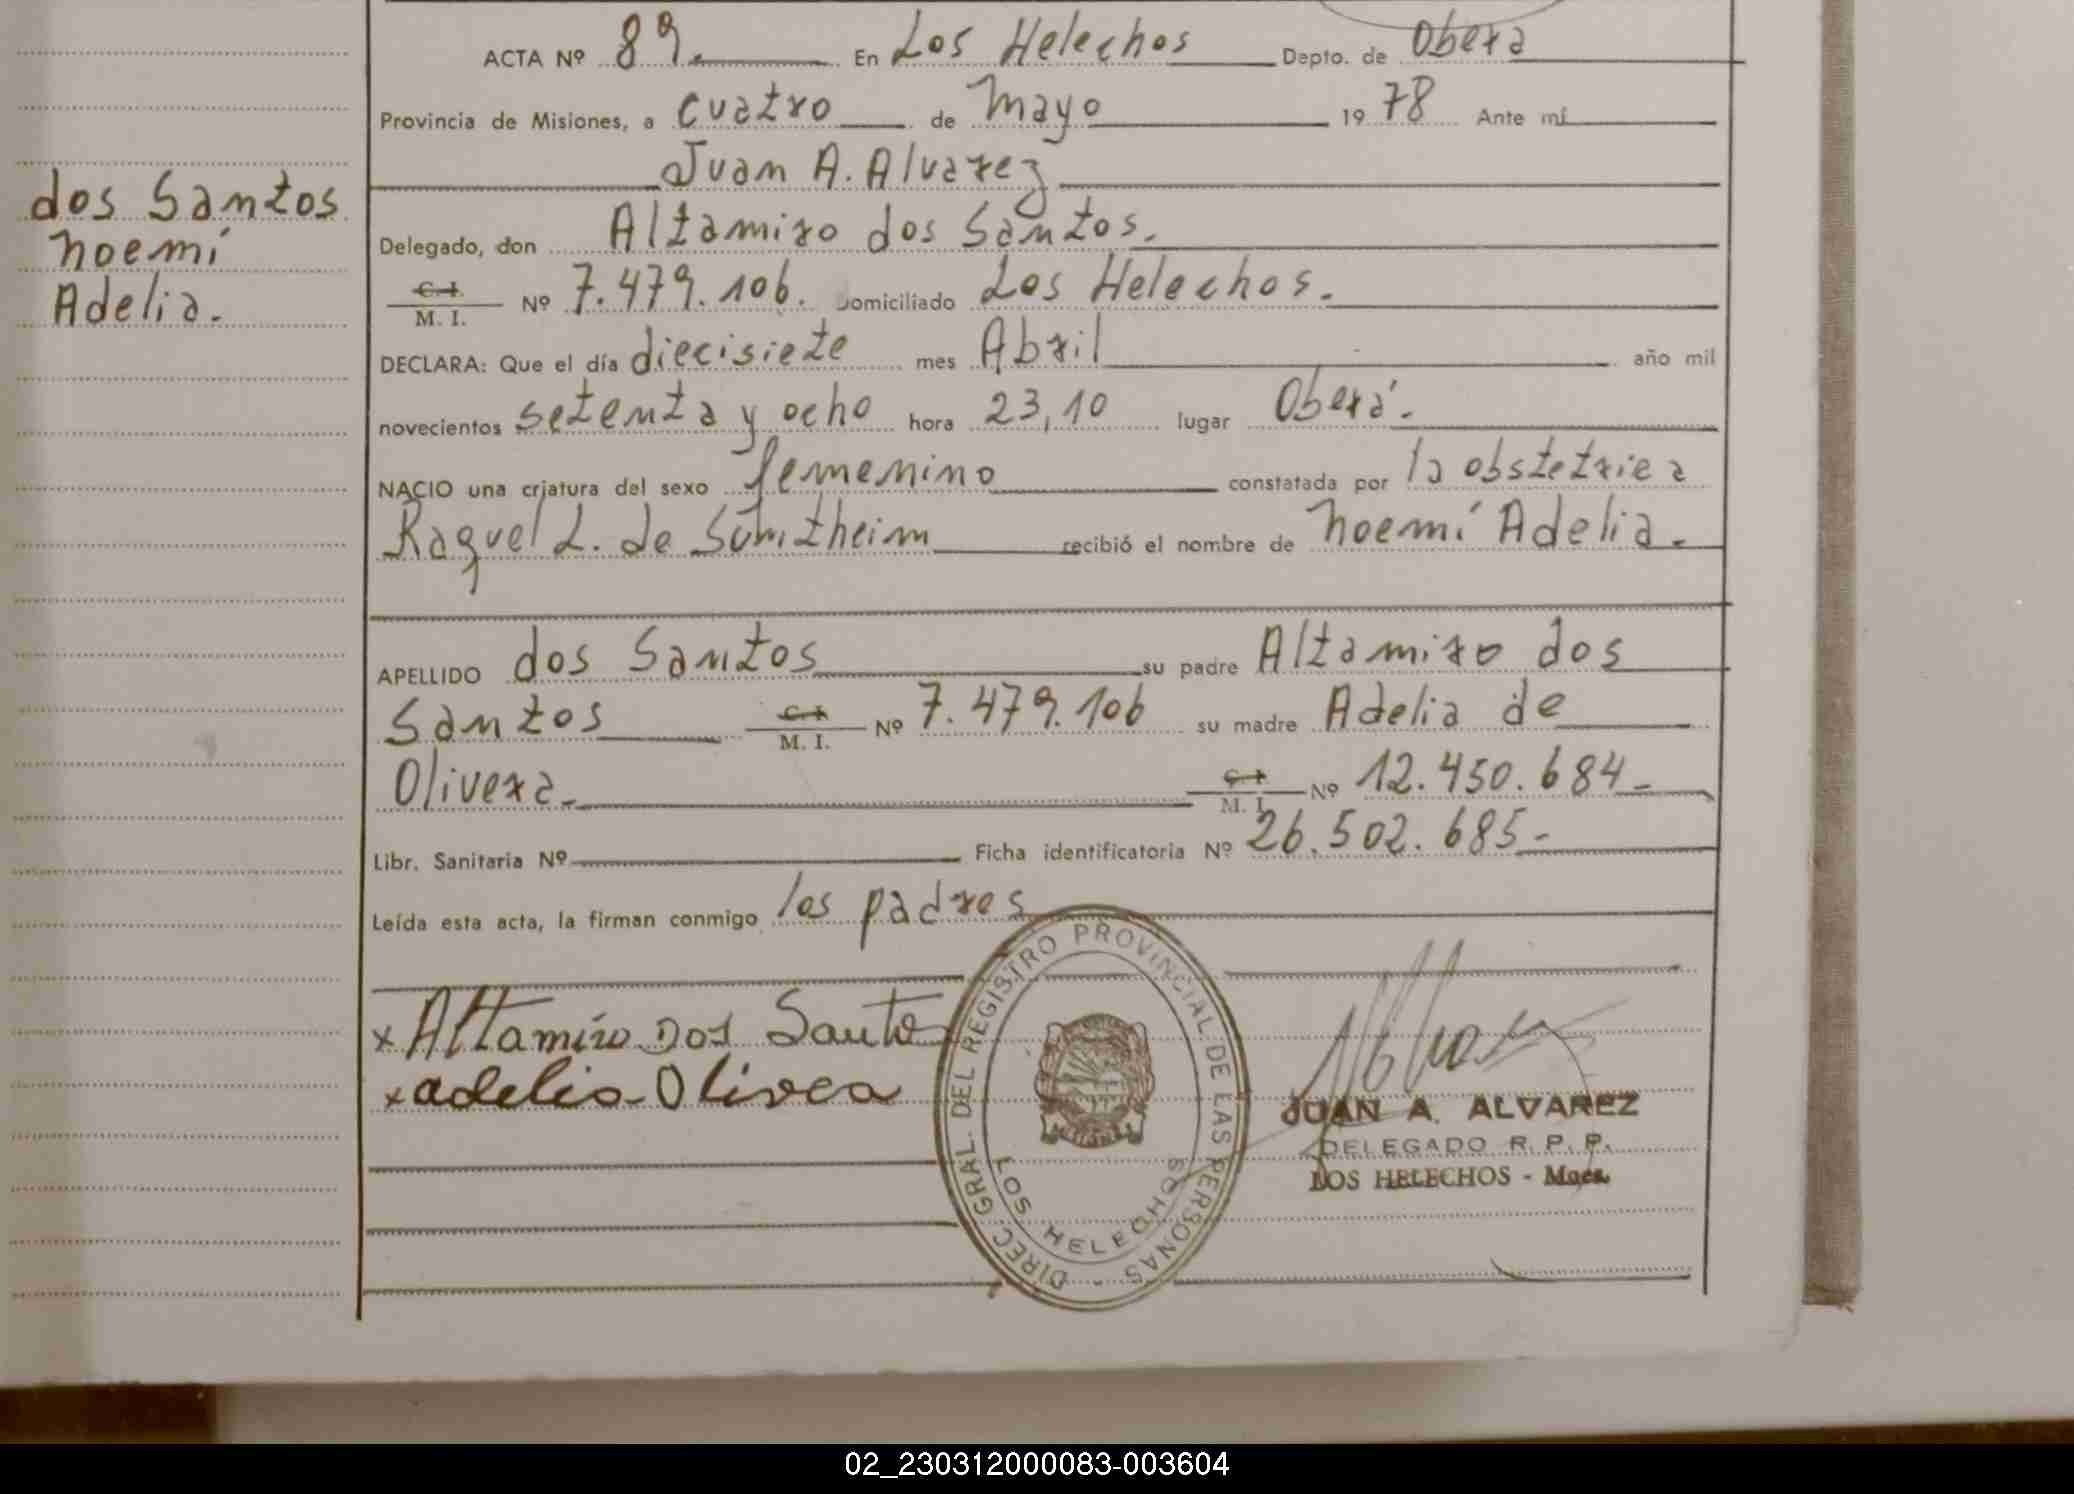 ACTA Nº 89. En Los Helechos Depto. de Oberá
Provincia de Misiones, a cuatro de Mayo 19 78 Ante mí
Juan A. Alvarez
dos Santos
Noemí
Adelia.
Delegado, don Altamiro dos Santos.
C. I.
M. I. Nº 7.479.106. Domiciliado Los Helechos.
DECLARA: Que el día diecisiete mes Abril año mil
novecientos setenta y ocho hora 23,10 lugar Oberá.
NACIO una criatura del sexo femenino constatada por la obstetrica
Raquel L. de recibió el nombre de Noemí Adelia.
APELLIDO dos Santos su padre Altamiro dos
Santos C. I. M. I. Nº 7.479.106 su madre Adelia de
Olivera. C. I. M. I. Nº 12.450.684-
Libr. Sanitaria Nº Ficha identificatoria Nº 26.502.685-
Leída esta acta, la firman conmigo los padres
x Altamiro Dos Santo
x adelia Olivea
DIREC. GRAL. DEL REGISTRO PROVINCIAL DE LAS PERSONAS -
LOS HELECHOS
JUAN A. ALVAREZ
DELEGADO R. P. P.
LOS HELECHOS - Mnes.
02_230312000083-003604